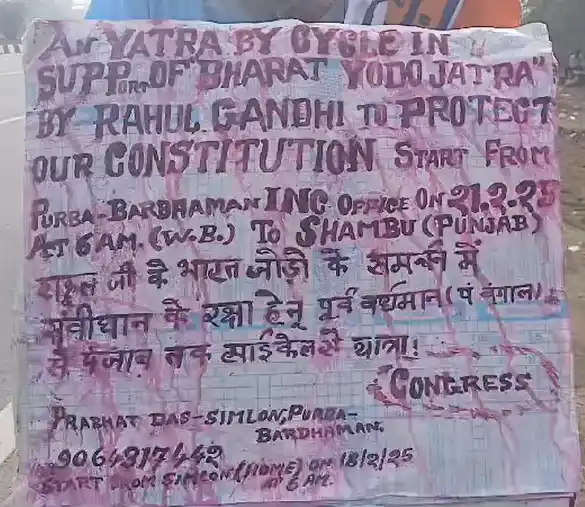 AN YATRA BY CYCLE IN
SUPPORT OF "BHARAT YODO JATRA"
BY RAHUL GANDHI TO PROTECT
OUR CONSTITUTION START FROM
PURBA-BARDHAMAN INC OFFICE ON 21.2.25
AT 6 AM. (W.B.) TO SHAMBU (PUNJAB)
राहुल जी के भारत जोड़ो के समर्थन में
संवीधान के रक्षा हेतू पूर्व वर्धमान (पं बंगाल)
से पंजाब तक साईकेल से यात्रा!
CONGRESS
PRABHAT DAS-SIMLON, PURBA-
BARDHAMAN.
9064917442
START FROM SIMLON (HOME) ON 18/2/25
AT 6 AM.